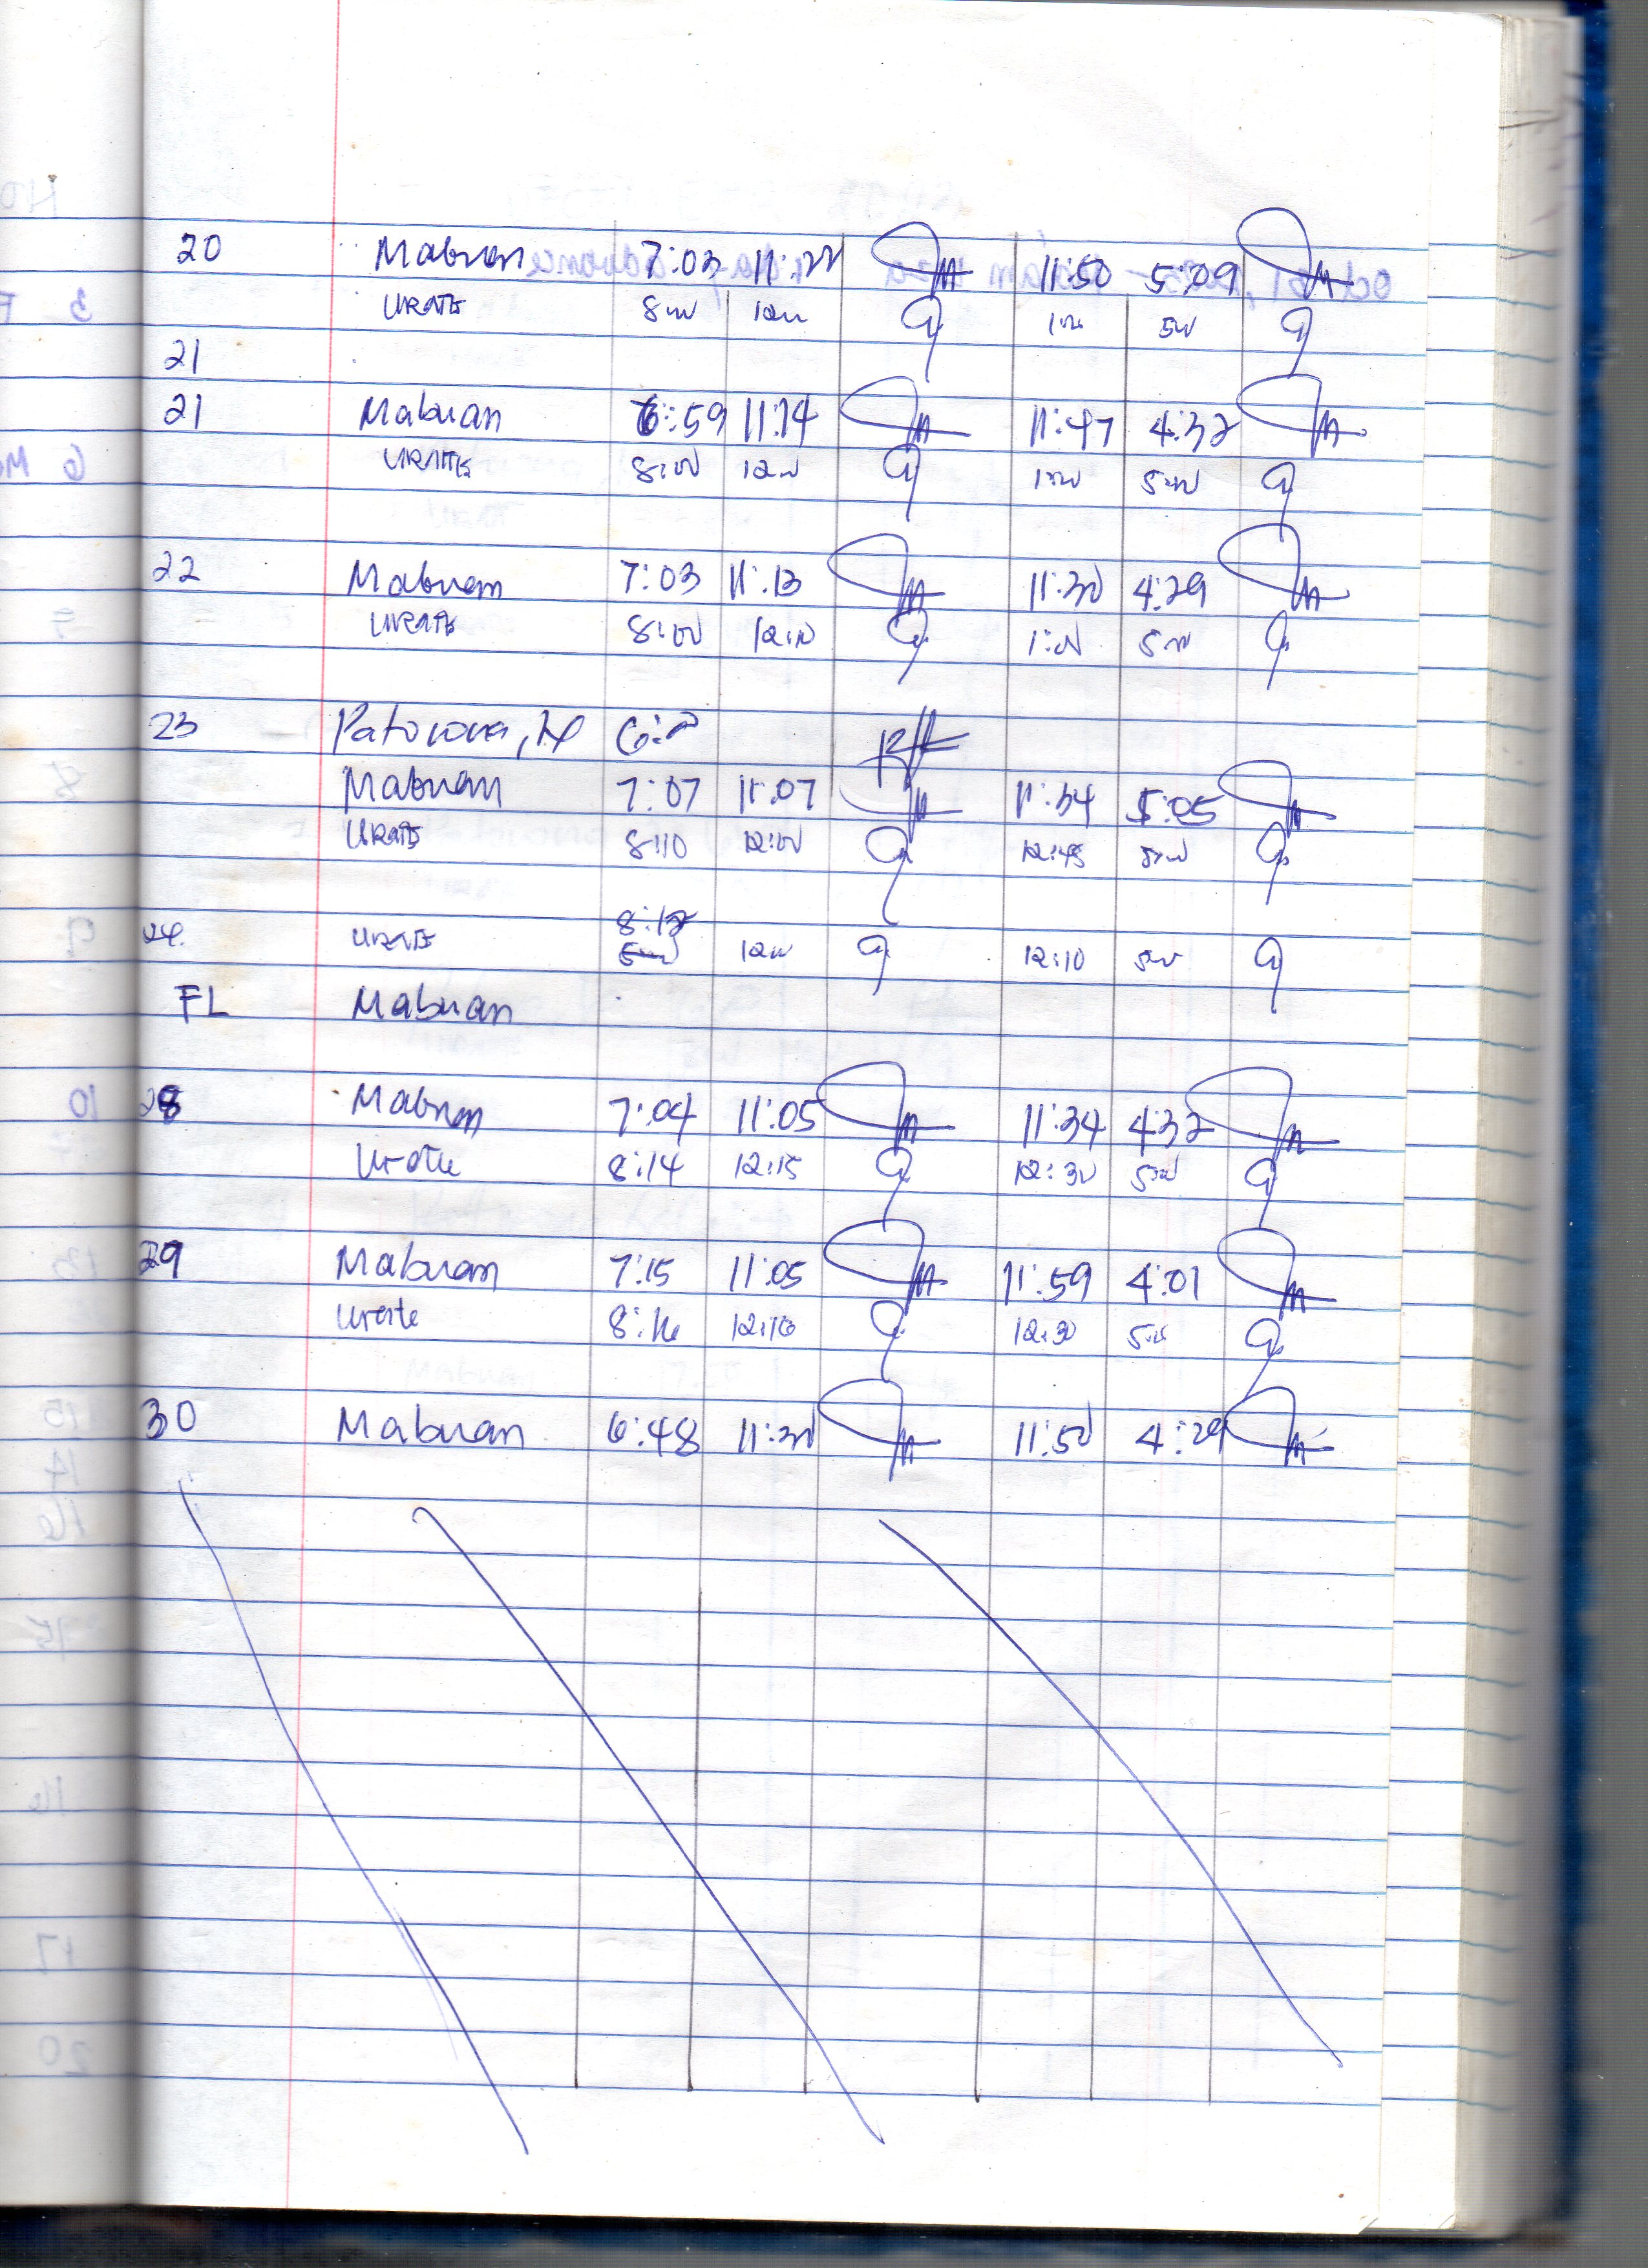 20 Mabuan 7:03 11:22 11:50 5:09
URATE 8:00 12:00 1:00 5:00
21
21 Mabuan 6:59 11:14 11:47 4:32
URATE 8:00 12:00 1:00 5:00
22 Mabuan 7:03 11:13 11:30 4:29
URATE 8:00 12:00 1:00 5:00
23
Mabuan 7:07 11:07 11:34 5:05
URATE 8:10 12:00 12:45 5:00
8:12
24. URATE 12:00 12:10 5:00
FL Mabuan
28 Mabuan 7:04 11:05 11:34 4:32
Urate 8:14 12:15 12:30 5:00
29 Mabuan 7:15 11:05 11:59 4:01
Urate 8:16 12:16 12:30 5:00
30 Mabuan 6:48 11:30 11:50 4:29